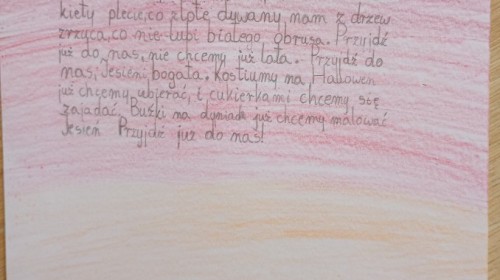 kiety plecie, co złote dywany nam z drzew
zrzuca, co nie lubi białego obrusa. Przyjdź
już do nas, nie chcemy już lata. Przyjdź do
nas, Jesieni bogata. Kostiumy na Hallowen
już chcemy ubierać, i cukierkami chcemy się
zajadać. Buźki na dyniach już chcemy malować
Jesień Przyjdź już do nas!